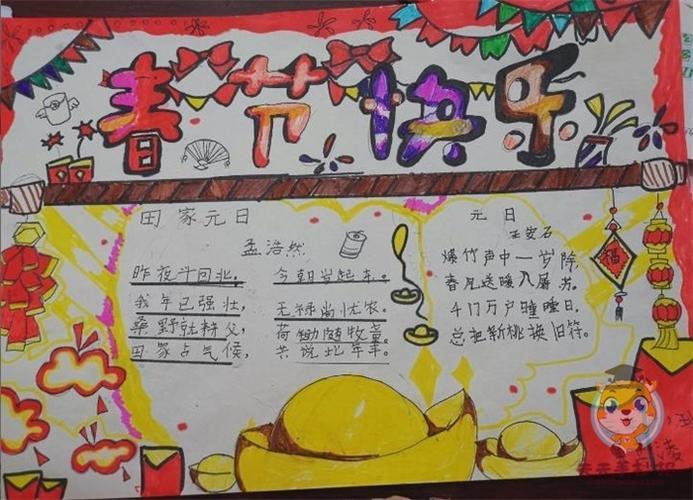 春节快乐
田家元日
孟浩然
昨夜斗回北,今朝岁起东。
我年已强壮,无禄尚忧农。
桑野就耕父,荷锄随牧童。
田家占气候,共说此年丰。
元日
王安石
爆竹声中一岁除,
春风送暖入屠苏。
千门万户曈曈日,
总把新桃换旧符。
福